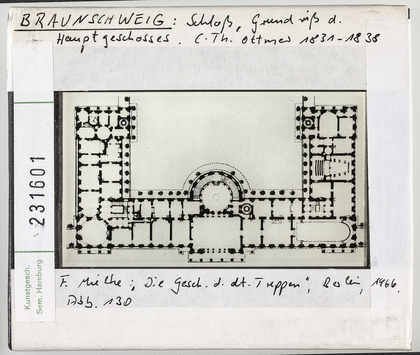 BRAUNSCHWEIG: Schloß, Grundriß d.
Hauptgeschosses. C. Th. Ottmer 1831-1838
231601
Kunstgesch.
Sem. Hamburg
F. Mielke: "Die Gesch. d. dt. Treppen", Berlin, 1966,
Abb. 130